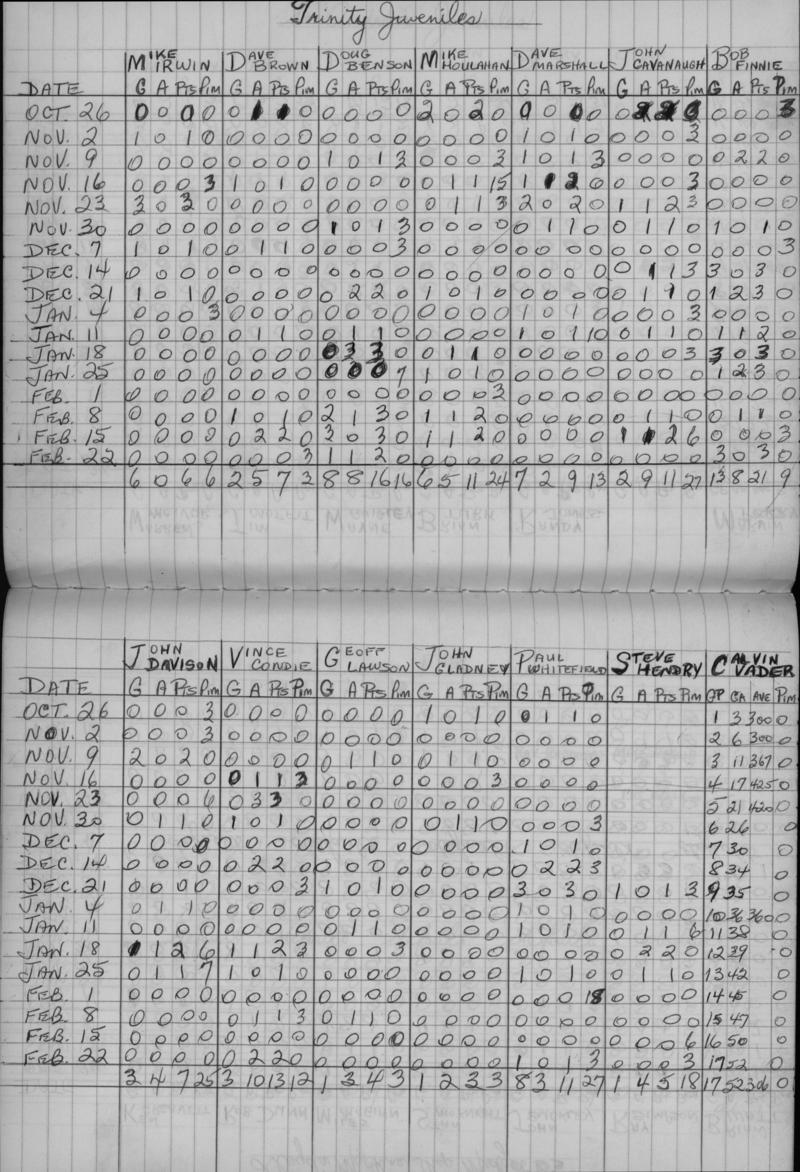 Trinity Juveniles
MIKE IRWIN DAVE BROWN DOUG BENSON MIKE HOULAHAN DAVE MARSHALL JOHN CAVANAUGH BOB FINNIE
DATE G A Pts Pim G A Pts Pim G A Pts Pim G A Pts Pim G A Pts Pim G A Pts Pim G A Pts Pim
OCT. 26 0 0 0 0 0 1 1 0 0 0 0 0 2 0 2 0 0 0 0 0 0 2 2 0 0 0 0 3
NOV. 2 1 0 1 0 0 0 0 0 0 0 0 0 0 0 0 0 1 0 1 0 0 0 0 3 0 0 0 0
NOV. 9 0 0 0 0 0 0 0 0 1 0 1 3 0 0 0 3 1 0 1 3 0 0 0 0 0 2 2 0
NOV. 16 0 0 0 3 1 0 1 0 0 0 0 0 0 1 1 15 1 1 2 0 0 0 0 3 0 0 0 0
NOV. 23 3 0 3 0 0 0 0 0 0 0 0 0 0 1 1 3 2 0 2 0 1 1 2 3 0 0 0 0
NOV. 30 0 0 0 0 0 0 0 0 1 0 1 3 0 0 0 0 0 1 1 0 0 1 1 0 1 0 1 0
DEC. 7 1 0 1 0 0 1 1 0 0 0 0 3 0 0 0 0 0 0 0 0 0 0 0 0 0 0 0 3
DEC. 14 0 0 0 0 0 0 0 0 0 0 0 0 0 0 0 0 0 0 0 0 0 1 1 3 3 0 3 0
DEC. 21 1 0 1 0 0 0 0 0 0 2 2 0 1 0 1 0 0 0 0 0 0 1 1 0 1 2 3 0
JAN. 4 0 0 0 3 0 0 0 0 0 0 0 0 0 0 0 0 1 0 1 0 0 0 0 3 0 0 0 0
JAN. 11 0 0 0 0 0 1 1 0 0 1 1 0 0 0 0 0 1 0 1 10 0 1 1 0 1 1 2 0
JAN. 18 0 0 0 0 0 0 0 0 0 3 3 0 0 1 1 0 0 0 0 0 0 0 0 3 3 0 3 0
JAN. 25 0 0 0 0 0 0 0 0 0 0 0 7 1 0 1 0 0 0 0 0 0 0 0 0 1 2 3 0
FEB. 1 0 0 0 0 0 0 0 0 0 0 0 0 0 0 0 3 0 0 0 0 0 0 0 0 0 0 0 0
FEB. 8 0 0 0 0 1 0 1 0 2 1 3 0 1 1 2 0 0 0 0 0 0 1 1 0 0 1 1 0
FEB. 15 0 0 0 0 0 2 2 0 3 0 3 0 1 1 2 0 0 0 0 0 1 1 2 6 0 0 0 3
FEB. 22 0 0 0 0 0 0 0 3 1 1 2 0 0 0 0 0 0 0 0 0 0 0 0 0 3 0 3 0
6 0 6 6 2 5 7 3 8 8 16 16 6 5 11 24 7 2 9 13 2 9 11 27 13 8 21 9
JOHN DAVISON VINCE CONDIE GEOFF LAWSON JOHN GLADNEY PAUL WHITEFIELD STEVE HENDRY CALVIN VADER
DATE G A Pts Pim G A Pts Pim G A Pts Pim G A Pts Pim G A Pts Pim G A Pts Pim GP GA AVE Pim
OCT. 26 0 0 0 3 0 0 0 0 0 0 0 0 1 0 1 0 0 1 1 0 1 3 300 0
NOV. 2 0 0 0 3 0 0 0 0 0 0 0 0 0 0 0 0 0 0 0 0 2 6 300 0
NOV. 9 2 0 2 0 0 0 0 0 0 1 1 0 0 1 1 0 0 0 0 0 3 11 367 0
NOV. 16 0 0 0 0 0 1 1 3 0 0 0 0 0 0 0 3 0 0 0 0 4 17 425 0
NOV. 23 0 0 0 6 0 3 3 0 0 0 0 0 0 0 0 0 0 0 0 0 5 21 420 0
NOV. 30 0 1 1 0 1 0 1 0 0 0 0 0 0 1 1 0 0 0 0 3 6 26 0
DEC. 7 0 0 0 0 0 0 0 0 0 0 0 0 0 0 0 0 1 0 1 0 7 30 0
DEC. 14 0 0 0 0 0 2 2 0 0 0 0 0 0 0 0 0 0 2 2 3 8 34 0
DEC. 21 0 0 0 0 0 0 0 3 1 0 1 0 0 0 0 0 3 0 3 0 1 0 1 3 9 35 0
JAN. 4 0 1 1 0 0 0 0 0 0 0 0 0 0 0 0 0 1 0 1 0 0 0 0 0 10 36 360 0
JAN. 11 0 0 0 0 0 0 0 0 0 1 1 0 0 0 0 0 1 0 1 0 0 1 1 6 11 38 0
JAN. 18 1 1 2 6 1 1 2 3 0 0 0 3 0 0 0 0 0 0 0 0 0 2 2 0 12 39 0
JAN. 25 0 1 1 7 1 0 1 0 0 0 0 0 0 0 0 0 1 0 1 0 0 1 1 0 13 42 0
FEB. 1 0 0 0 0 0 0 0 0 0 0 0 0 0 0 0 0 0 0 0 18 0 0 0 0 14 45 0
FEB. 8 0 0 0 0 0 1 1 3 0 1 1 0 0 0 0 0 0 0 0 0 0 0 0 0 15 47 0
FEB. 15 0 0 0 0 0 0 0 0 0 0 0 0 0 0 0 0 0 0 0 0 0 0 0 6 16 50 0
FEB. 22 0 0 0 0 0 2 2 0 0 0 0 0 0 0 0 0 1 0 1 3 0 0 0 3 17 52 0
3 4 7 25 3 10 13 12 1 3 4 3 1 2 3 3 8 3 11 27 1 4 5 18 17 52 306 0